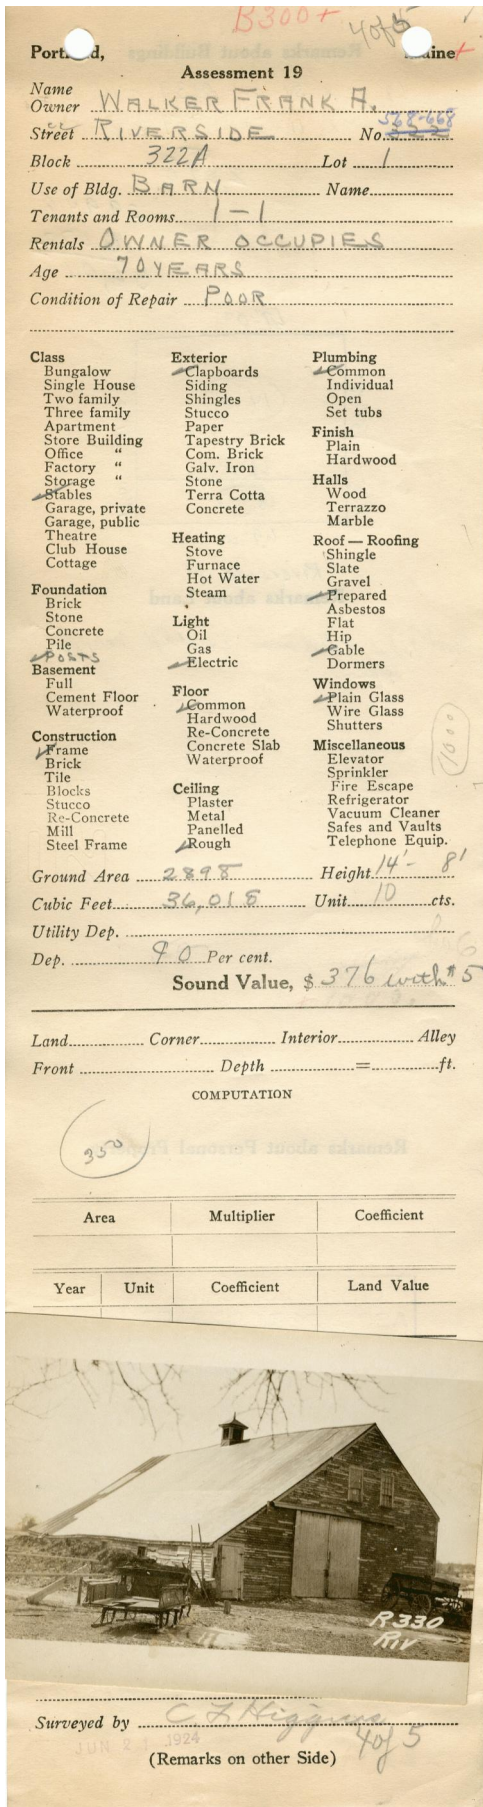 B300+
4 of 5
Portland, Maine
Assessment 19
Name
Owner WALKER FRANK A.
568-668
Street RIVERSIDE No.
Block 322A Lot 1
Use of Bldg. BARN Name
Tenants and Rooms 1-1
Rentals OWNER OCCUPIES
Age 70 YEARS
Condition of Repair POOR
Class
Bungalow
Single House
Two family
Three family
Apartment
Store Building
Office "
Factory "
Storage "
Stables
Garage, private
Garage, public
Theatre
Club House
Cottage
Foundation
Brick
Stone
Concrete
Pile
POSTS
Basement
Full
Cement Floor
Waterproof
Construction
Frame
Brick
Tile
Blocks
Stucco
Re-Concrete
Mill
Steel Frame
Exterior
Clapboards
Siding
Shingles
Stucco
Paper
Tapestry Brick
Com. Brick
Galv. Iron
Stone
Terra Cotta
Concrete
Heating
Stove
Furnace
Hot Water
Steam
Light
Oil
Gas
Electric
Floor
Common
Hardwood
Re-Concrete
Concrete Slab
Waterproof
Ceiling
Plaster
Metal
Panelled
Rough
Plumbing
Common
Individual
Open
Set tubs
Finish
Plain
Hardwood
Halls
Wood
Terrazzo
Marble
Roof — Roofing
Shingle
Slate
Gravel
Prepared
Asbestos
Flat
Hip
Gable
Dormers
Windows
Plain Glass
Wire Glass
Shutters
Miscellaneous
Elevator
Sprinkler
Fire Escape
Refrigerator
Vacuum Cleaner
Safes and Vaults
Telephone Equip.
1600
Ground Area 2898 Height 14'- 8'
Cubic Feet 36,018 Unit 10 cts.
Utility Dep.
Dep. 90 Per cent.
Sound Value, $ 376 with #5
Land Corner Interior Alley
Front Depth = ft.
COMPUTATION
350
Area Multiplier Coefficient
Year Unit Coefficient Land Value
R330
RIV
Surveyed by C L Higgins
JUN 21 1924
4 of 5
(Remarks on other Side)